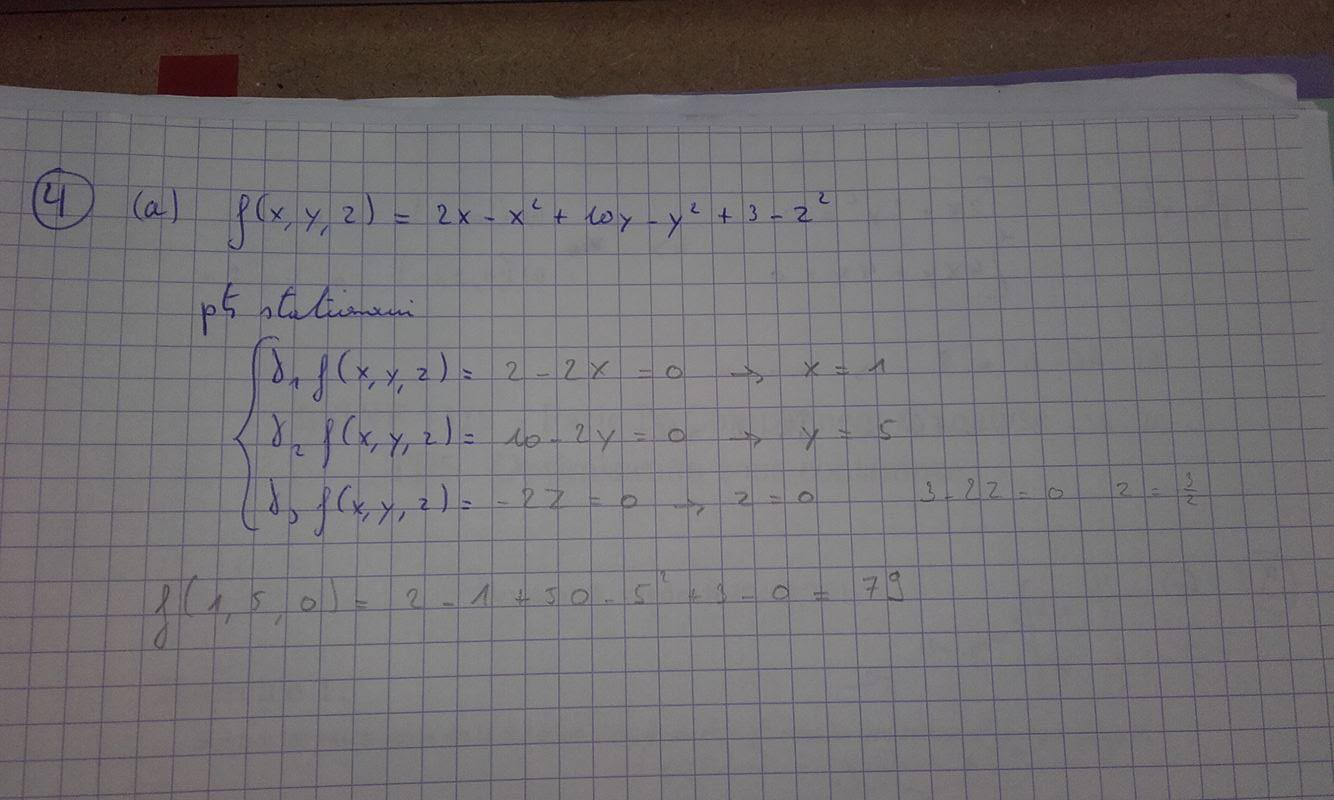 4 (a) f(x, y, z) = 2x - x² + 10y - y² + 3 - z²
pts stationnaires
∂₁ f(x, y, z) = 2 - 2x = 0 → x = 1
∂₂ f(x, y, z) = 10 - 2y = 0 → y = 5
∂₃ f(x, y, z) = -2z = 0 → z = 0 3 - 2z = 0 z = 3/2
f(1, 5, 0) = 2 - 1 + 50 - 5² + 3 - 0 = 79